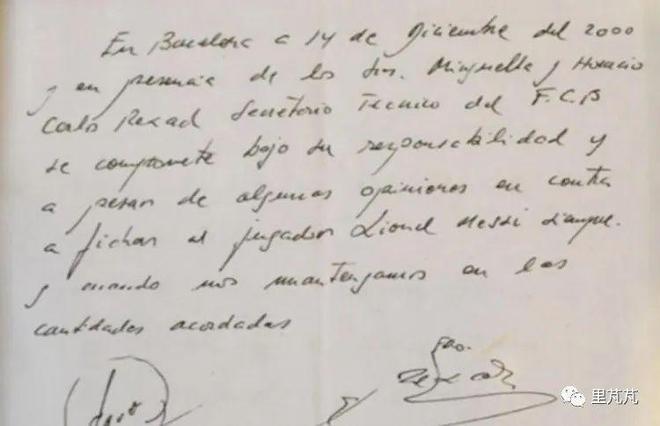 En Barcelona a 14 de Diciembre del 2000
y en presencia de los Srs. Minguella y Horacio
Carlos Rexach Secretario Técnico del F.C.B
se compromete bajo su responsabilidad y
a pesar de algunas opiniones en contra
a fichar al jugador Lionel Messi siempre
y cuando nos mantengamos en las
cantidades acordadas
Fdo.
里芃芃